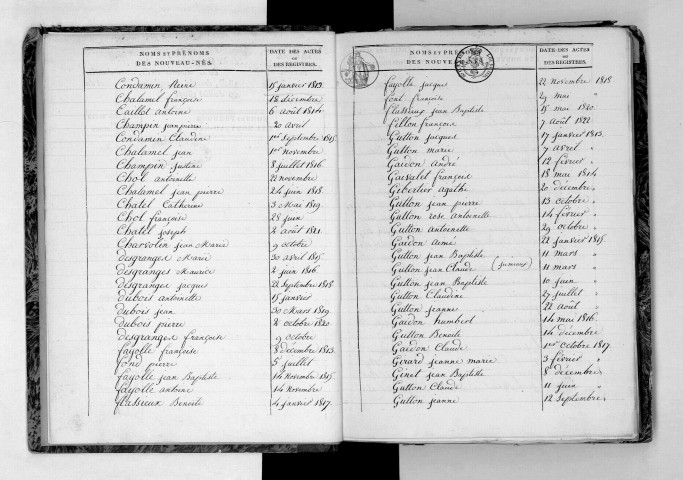 NOMS ET PRÉNOMS DES NOUVEAU-NÉS.
DATE DES ACTES OU DES REGISTRES.
Condamin Reine 15 janvier 1813.
Chalamel françois 18 décembre
Caillot antoine 6 août 1814
Champin jeanpierre 20 avril
Condamin Claudine 1er Septembre 1815
Chalamel jean 1er Novembre
Champin justine 8 juillet 1816
Chol antoinette 22 novembre
Chalamel jean pierre 24 juin 1818
Chatel Catherine 3 Mai 1819
Chol françoise 28 juin
Chatel joseph 4 août 1821
Charvolin jean Marie 9 octobre
desgranges Marie 30 avril 1815
desgranges Maurice 4 juin 1816
desgranges jacques 22 Septembre 1818
dubois antoinette 15 janvier
dubois jean 30 Mars 1819
dubois pierre 4 octobre 1820
desgranges françois 9 octobre
fayolle françoise 8 décembre 1813
fond pierre 5 juillet
fayolle jean Baptiste 14 Novembre 1815
fayolle antoine 14 Novembre
flassieux Benoite 4 janvier 1817
NOMS ET PRÉNOMS DES NOUVEAU-NÉS.
DATE DES ACTES OU DES REGISTRES.
fayolle jacques 22 novembre 1818
font françoise 24 mai "
flassieux jean Baptiste 15 mai 1820
fillon françois 7 août 1822
Gutton jacques 17 janvier 1813
Gutton marie 7 avril "
Gaidon andré 12 février "
françois 18 mai 1814
Gibertier agathe 20 décembre "
Gutton jean pierre 13 octobre "
Gutton rose antoinette 14 février "
Gutton antoinette 29 octobre "
Gaidon aimé 22 janvier 1815
Gutton jean Baptiste 11 mars "
Gutton jean Claude (jumeaux) 11 mars "
Gutton jean Baptiste 10 juin "
Gutton Claudine 27 juillet "
Gutton jeanne 22 août "
Gaidon humbert 14 mai 1816
Gutton Benoite 14 décembre
Gaidon Claude 1er octobre 1817
Girard jeanne marie 3 février "
Genet jean Baptiste 8 décembre
Gutton Claude 11 juin "
Gutton jeanne 12 Septembre